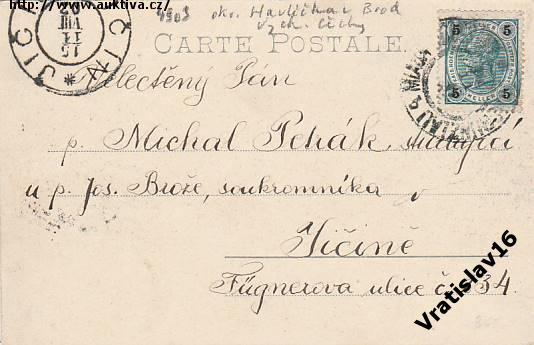 http://www.auktiva.cz/
1903 okr. Havlíčkův Brod
Vých. Čechy
JIČÍN
15
VIII
CARTE POSTALE.
5 5
5 5
Velectěný Pán
p. Michal Peták, studující
u p. Jos. Brože, soukromníka v
Jičíně
Fügnerova ulice č. 34.
Vratislav16